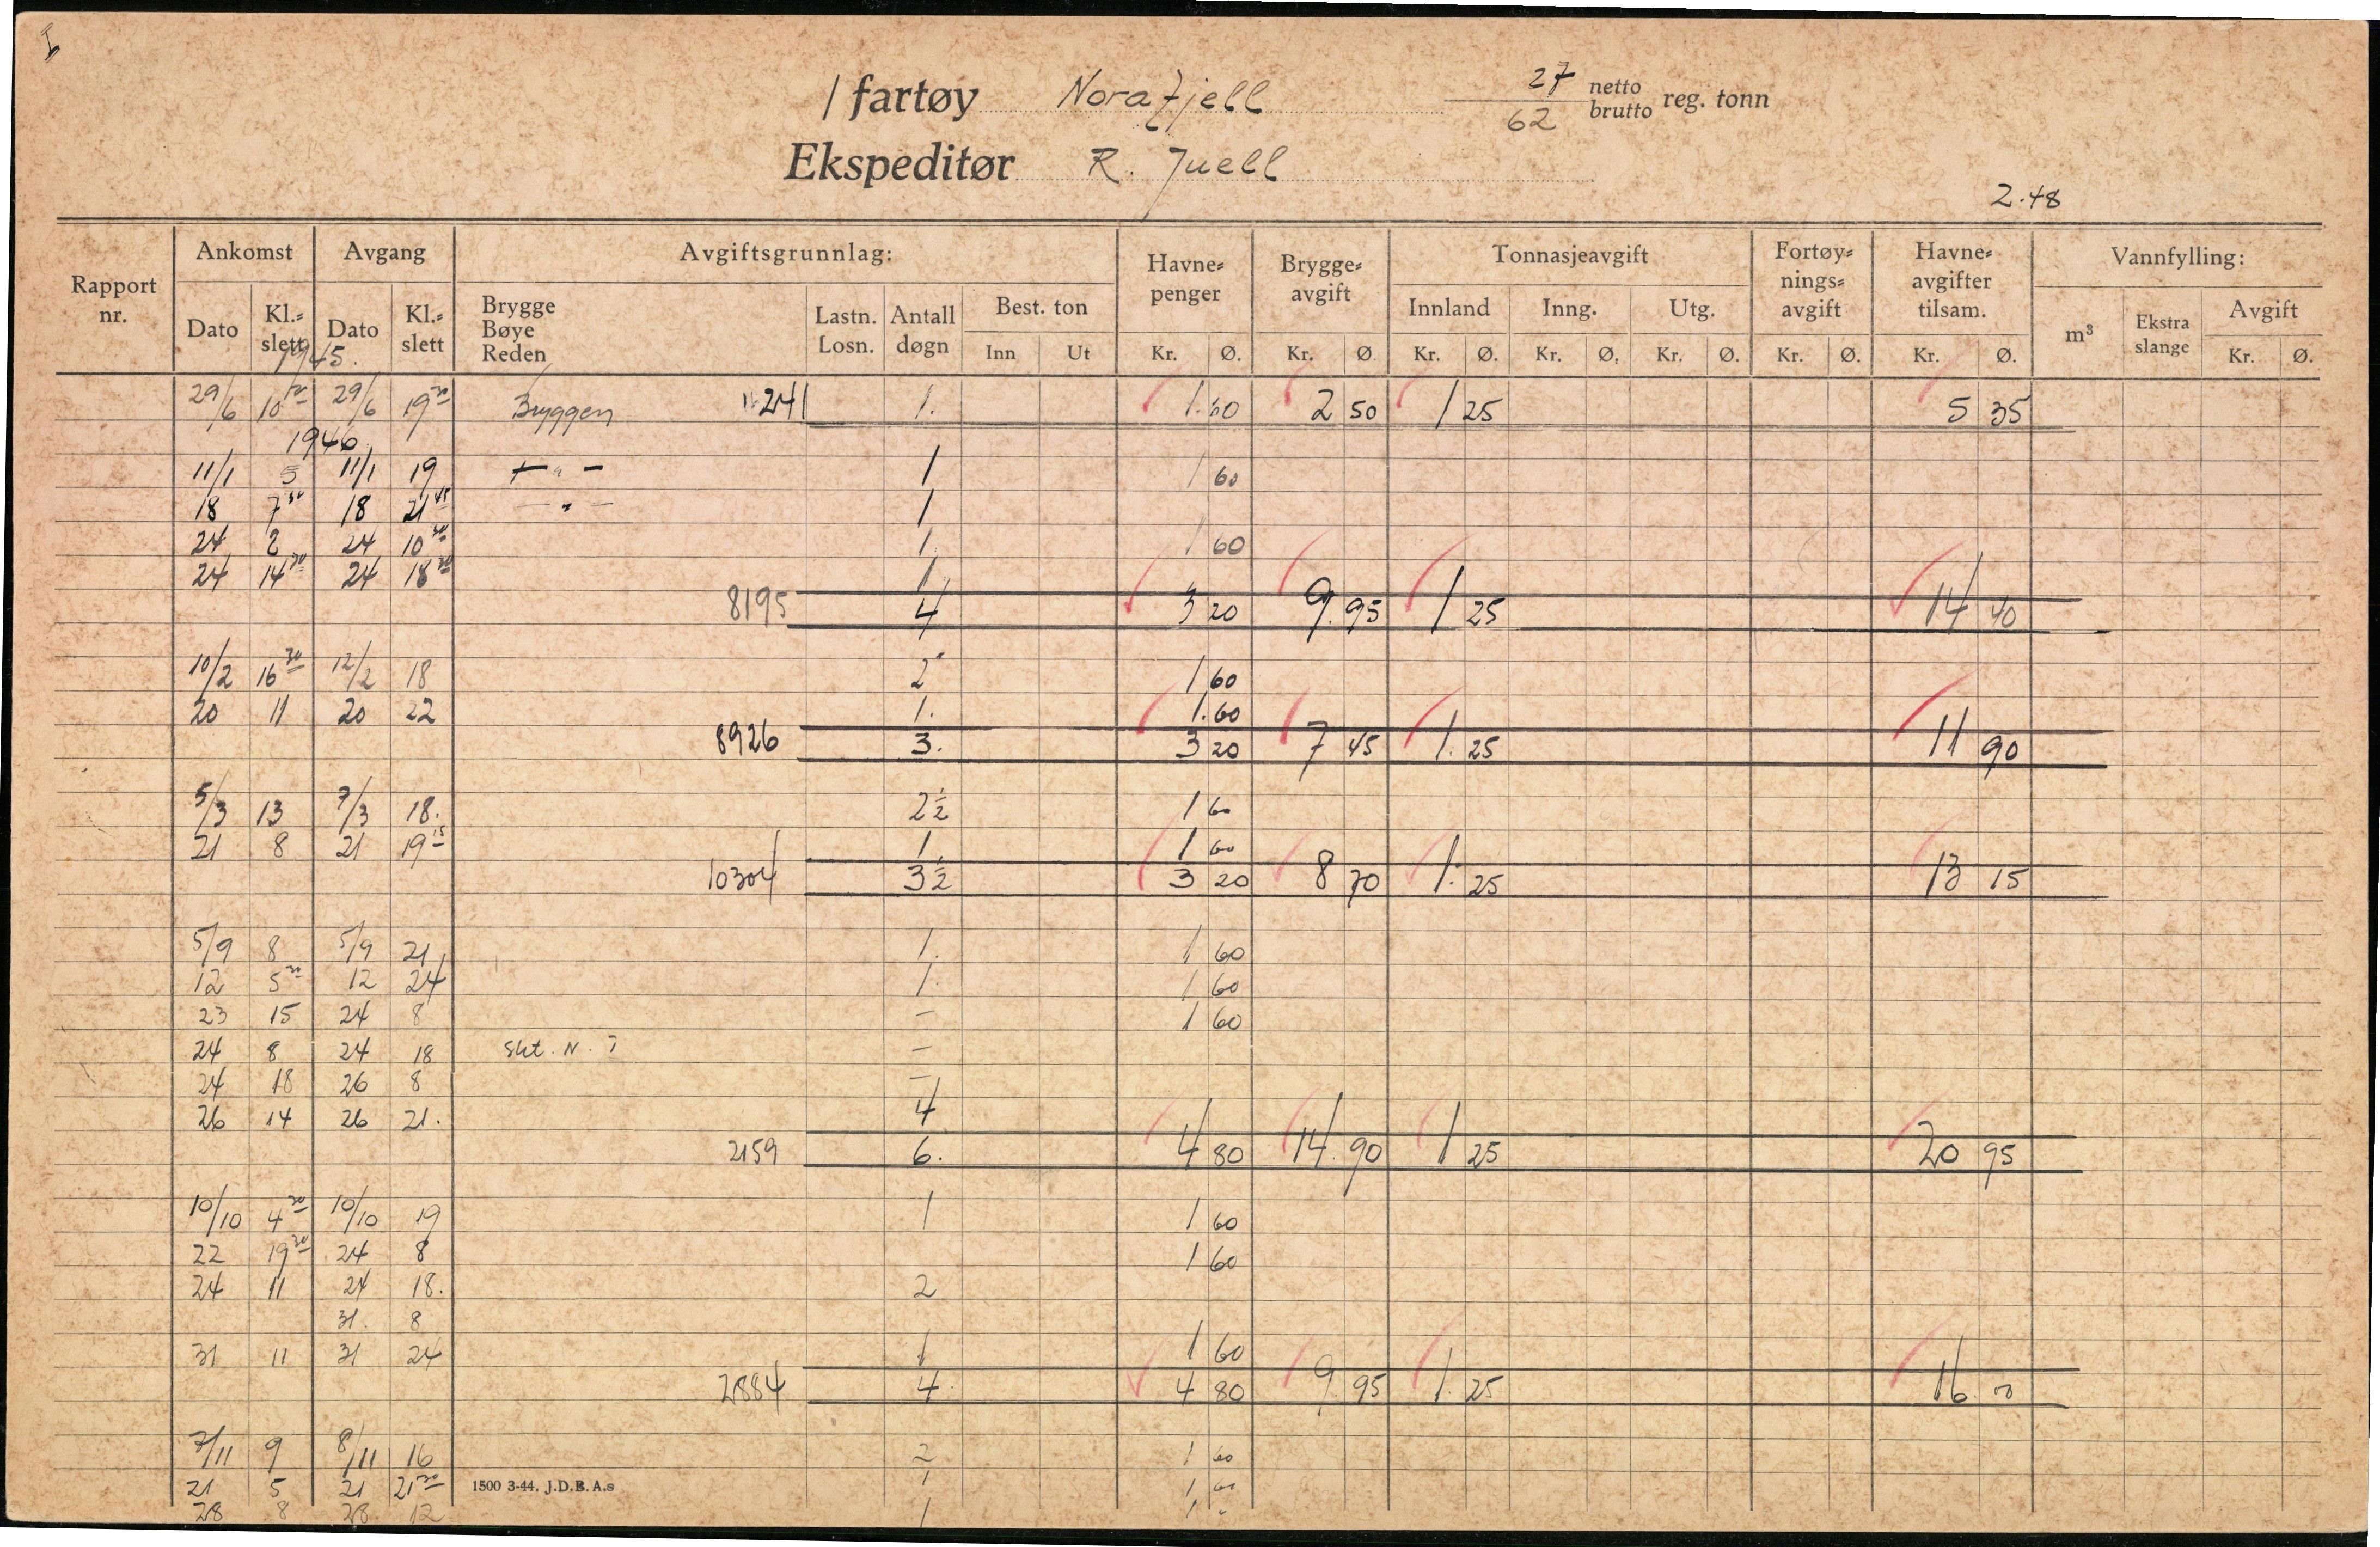 I
/ fartøy Norafjell 27 netto 62 brutto reg. tonn
Ekspeditør R. Juell
2.48
Rapport nr. Ankomst Avgang Avgiftsgrunnlag: Havne= penger Brygge= avgift Tonnasjeavgift Fortøy= nings= avgift Havne= avgifter tilsam. Vannfylling:
Dato Kl.= slett Dato Kl.= slett Brygge Bøye Reden Lastn. Losn. Antall døgn Best. ton Innland Inng. Utg. m³ Ekstra slange Avgift
Inn Ut Kr. Ø. Kr. Ø. Kr. Ø. Kr. Ø. Kr. Ø. Kr. Ø. Kr. Ø. Kr. Ø.
1945.
29/6 10 29/6 19 30 Bryggen 1241 1. 1.60 2 50 1 25 5 35
1946
11/1 5 11/1 19 - " - 1 1 60
18 7 30 18 21 45 - " - 1
24 2 24 10 30 1. 1 60
24 14 30 24 18 30 1
8195 4 3 20 9.95 1 25 14 40
10/2 16 30 12/2 18 2 1 60
20 11 20 22 1. 1.60
8926 3. 3 20 7 45 1.25 11 90
5/3 13 7/3 18. 2½ 1 60
21 8 21 19 15 1 1 60
10304 3½ 3 20 8 70 1.25 13 15
5/9 8 5/9 21 1. 1 60
12 5 30 12 24 1. 1 60
23 15 24 8 - 1 60
24 8 24 18 Skt. N. -
24 18 26 8 -
26 14 26 21. 4
2159 6. 4 80 14.90 1 25 20 95
10/10 4 30 10/10 19 1 1 60
22 19 30 24 8 1 60
24 11 24 18. 2
31. 8
31 11 31 24 1 1 60
2884 4. 4 80 9 95 1.25 16.00
7/11 9 8/11 16 2 1 60
21 5 21 21 30 1500 3-44. J.D.B.A.s 1 1 60
28 8 28 12 1 1 "